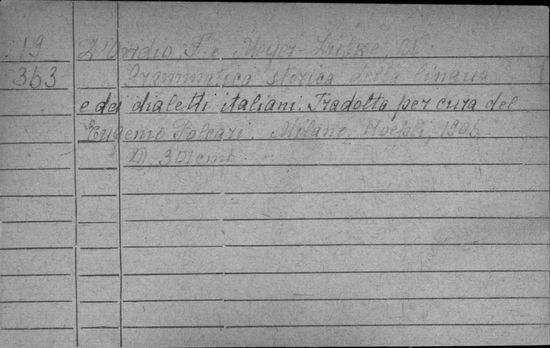 19 D'Ovidio F. e Meyer-Lübke W.
363 Grammatica storica della lingua
e dei dialetti italiani. Tradotta per cura del
Eugenio Polcari. Milano, Hoepli, 1906
XII, 301